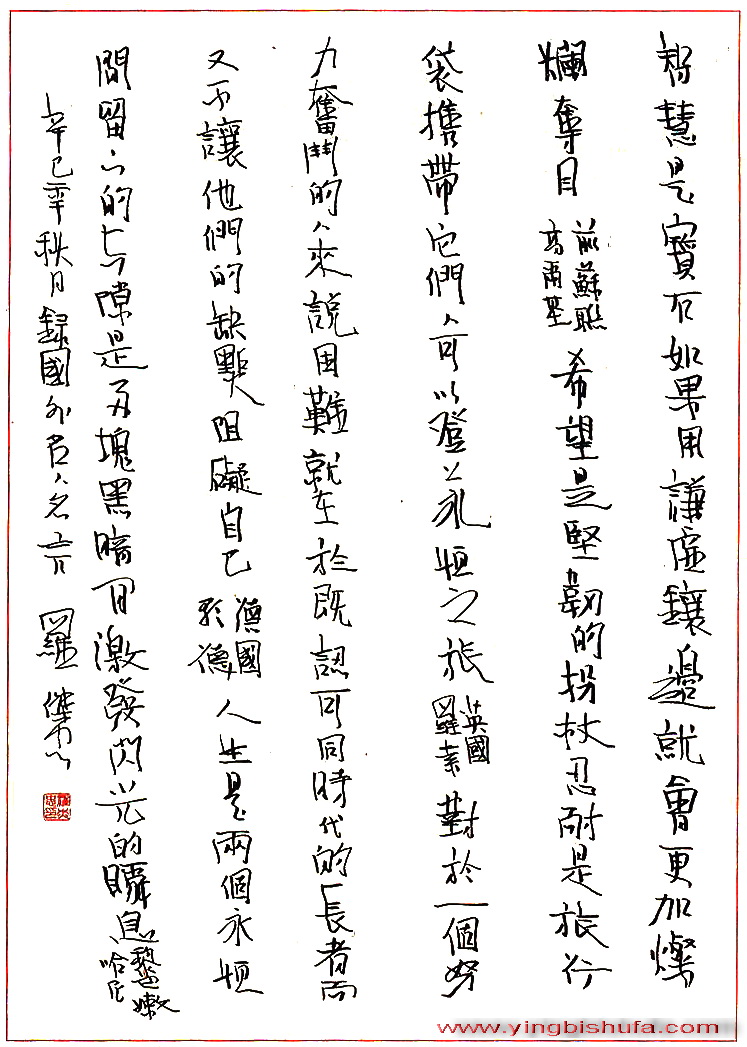 智慧是寶石如果用謙虛鑲邊就會更加燦
爛奪目前蘇聯高爾基希望是堅韌的拐杖忍耐是旅行
袋攜帶它們人可以登上永恒之旅英國羅素對於一個努
力奮鬥的人來說困難就在於既認可同時代的長者而
又不讓他們的缺點阻礙自己德國歌德人生是兩個永恒
間留下的空隙是兩塊黑暗間激發閃光的瞬息黎嫩哈尼
辛巳年秋日錄國外名人名言 羅
www.yingbishufa.com